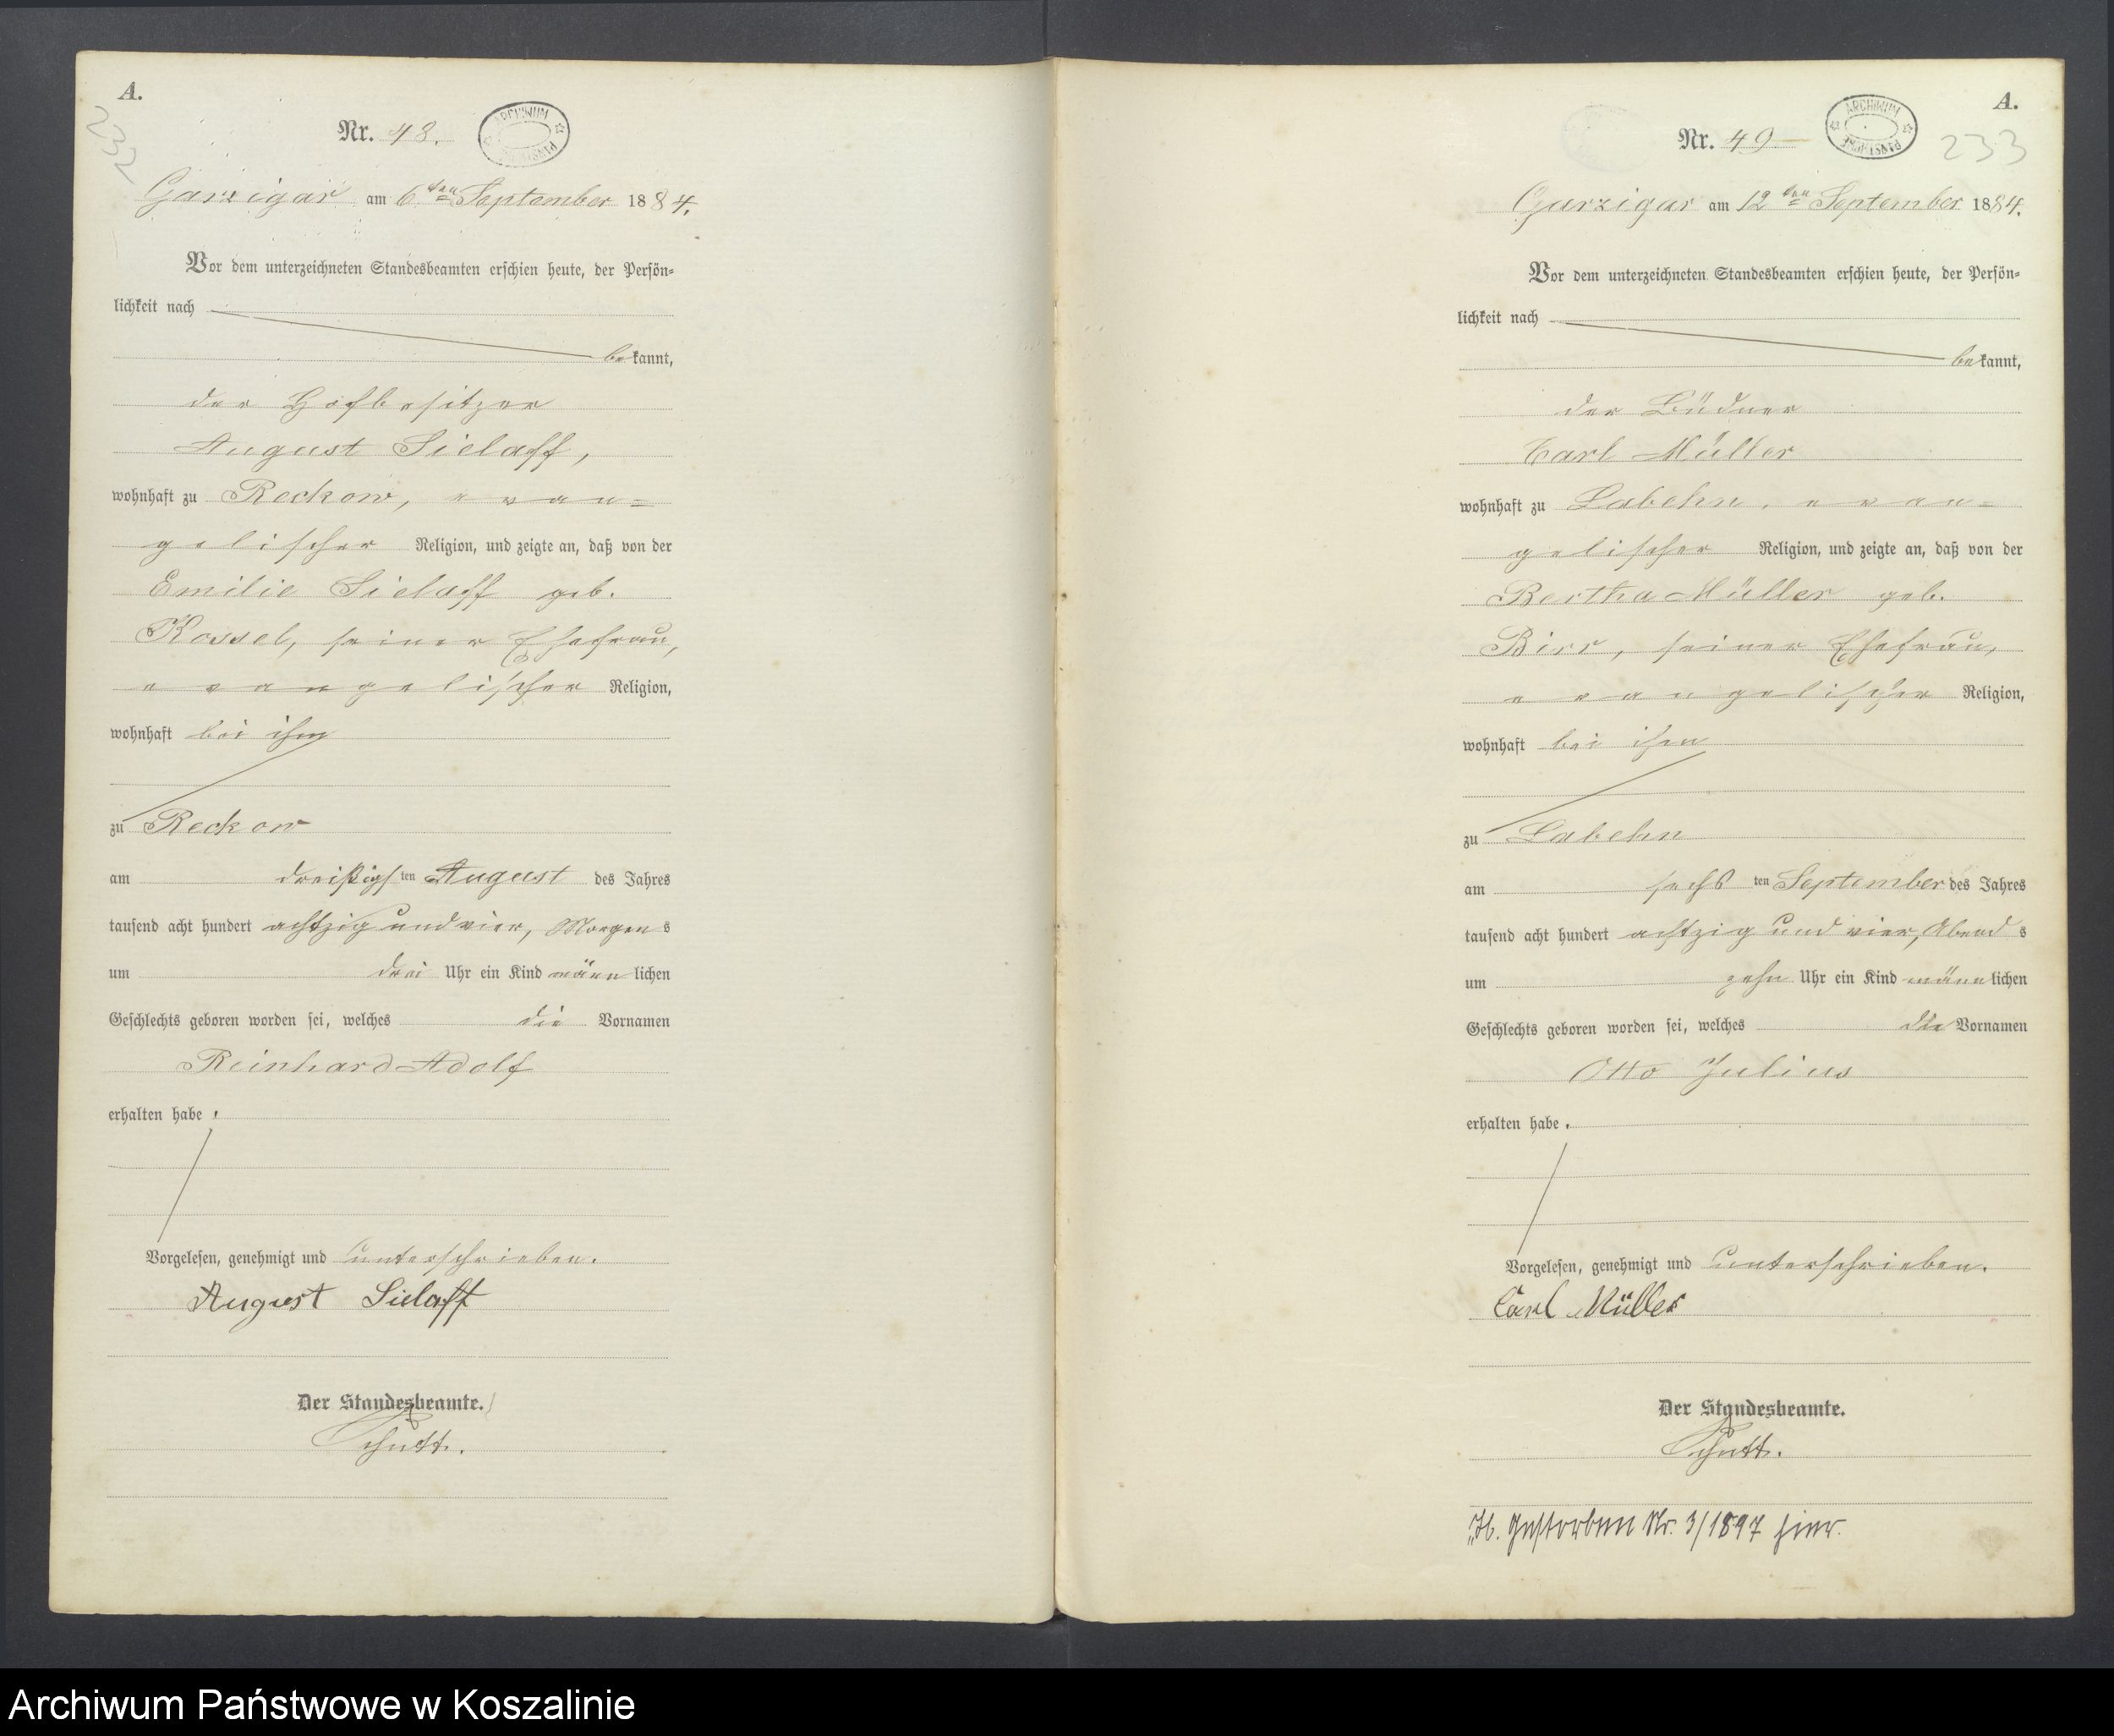 A.
232
Nr. 48.
ARCHIWUM PAŃSTWOWE
Garzigar am 6ten September 1884.
Vor dem unterzeichneten Standesbeamten erschien heute, der Persön-
lichkeit nach
bekannt,
der Hofbesitzer
August Sielaff,
wohnhaft zu Reckow, evan-
gelischer Religion, und zeigte an, daß von der
Emilie Sielaff geb.
Kossel, seiner Ehefrau,
evangelischer Religion,
wohnhaft bei ihm
zu Reckow
am dreißigsten August des Jahres
tausend acht hundert achtzig und vier, Morgens
um drei Uhr ein Kind männlichen
Geschlechts geboren worden sei, welches die Vornamen
Reinhard Adolf
erhalten habe.
Vorgelesen, genehmigt und unterschrieben.
August Sielaff
Der Standesbeamte.
Schutt.
A.
Nr. 49
ARCHIWUM PAŃSTWOWE
233
Garzigar am 12ten September 1884.
Vor dem unterzeichneten Standesbeamten erschien heute, der Persön-
lichkeit nach
bekannt,
der Büdner
Carl Müller
wohnhaft zu Labehn, evan-
gelischer Religion, und zeigte an, daß von der
Bertha Müller geb.
Birr, seiner Ehefrau,
evangelischer Religion,
wohnhaft bei ihm
zu Labehn
am sechsten September des Jahres
tausend acht hundert achtzig und vier, Abends
um zehn Uhr ein Kind männlichen
Geschlechts geboren worden sei, welches die Vornamen
Otto Julius
erhalten habe.
Vorgelesen, genehmigt und unterschrieben.
Carl Müller
Der Standesbeamte.
Schutt.
Gestorben Nr. 3/1897 hier.
Archiwum Państwowe w Koszalinie